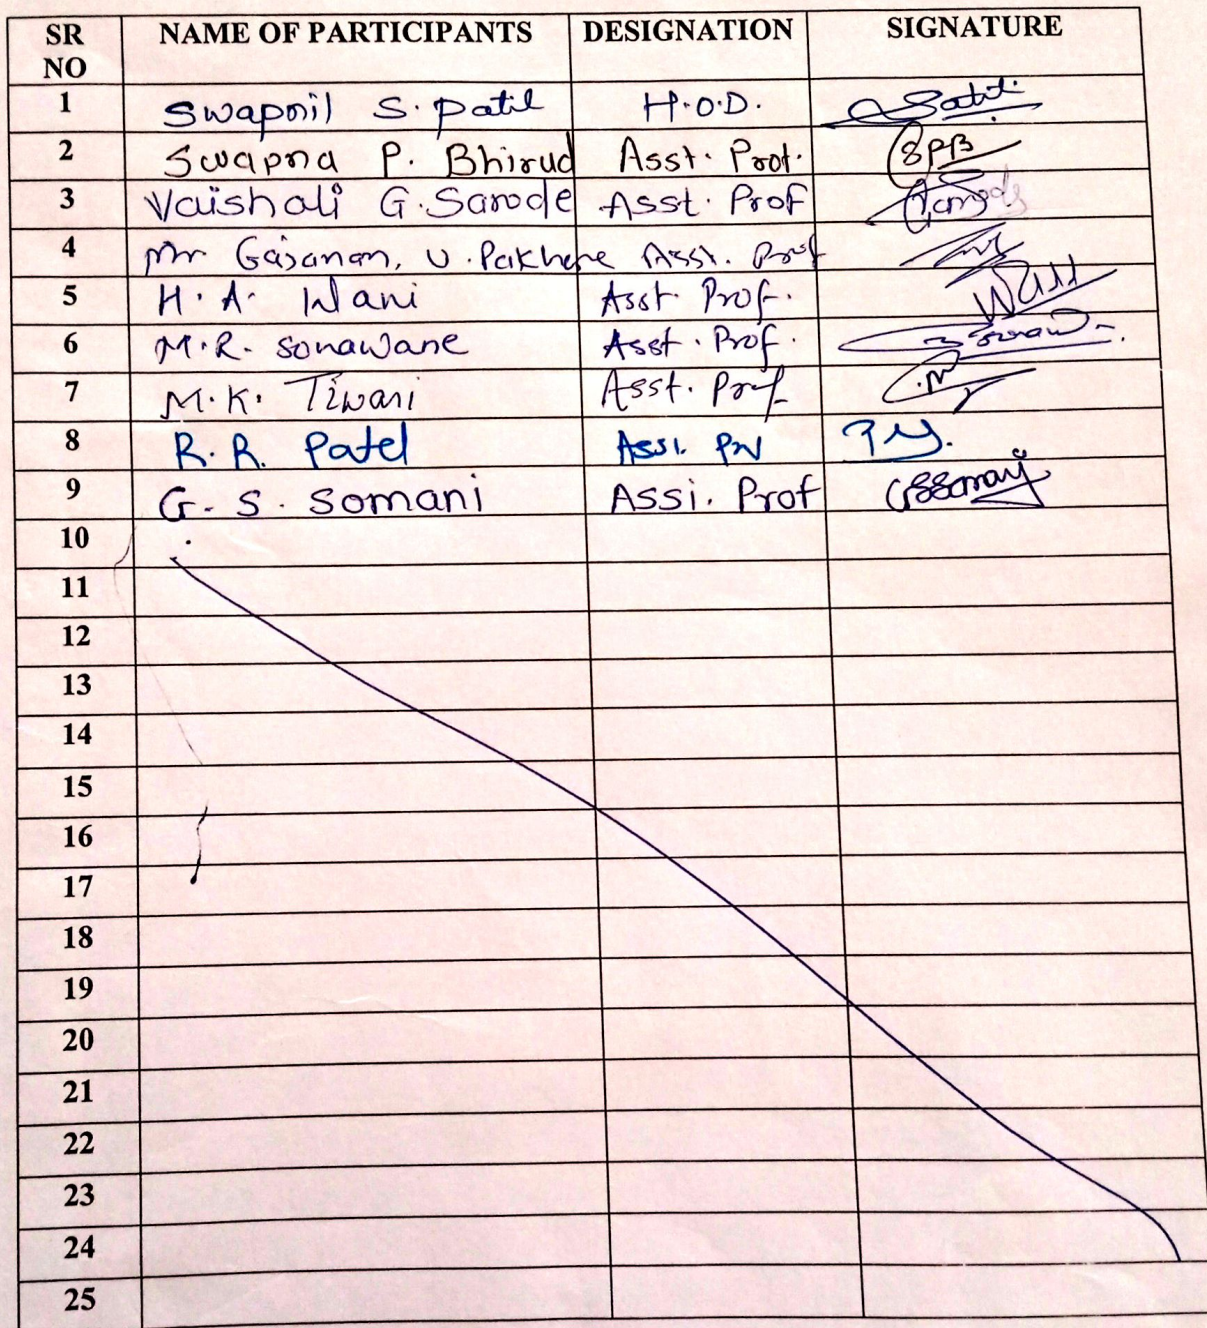 SR NO NAME OF PARTICIPANTS DESIGNATION SIGNATURE
1 Swapnil S. Patil H.O.D.
2 Swapna P. Bhirud Asst. Prof. SPB
3 Vaishali G. Sarode Asst. Prof
4 Mr Gajanan. U. Pakhere Asst. Prof
5 H. A. Wani Asst Prof. Wani
6 M.R. Sonawane Asst. Prof.
7 M.K. Tiwari Asst. Prof
8 R. R. Patel
9 G. S. Somani Assi. Prof GSSomani
10
11
12
13
14
15
16
17
18
19
20
21
22
23
24
25